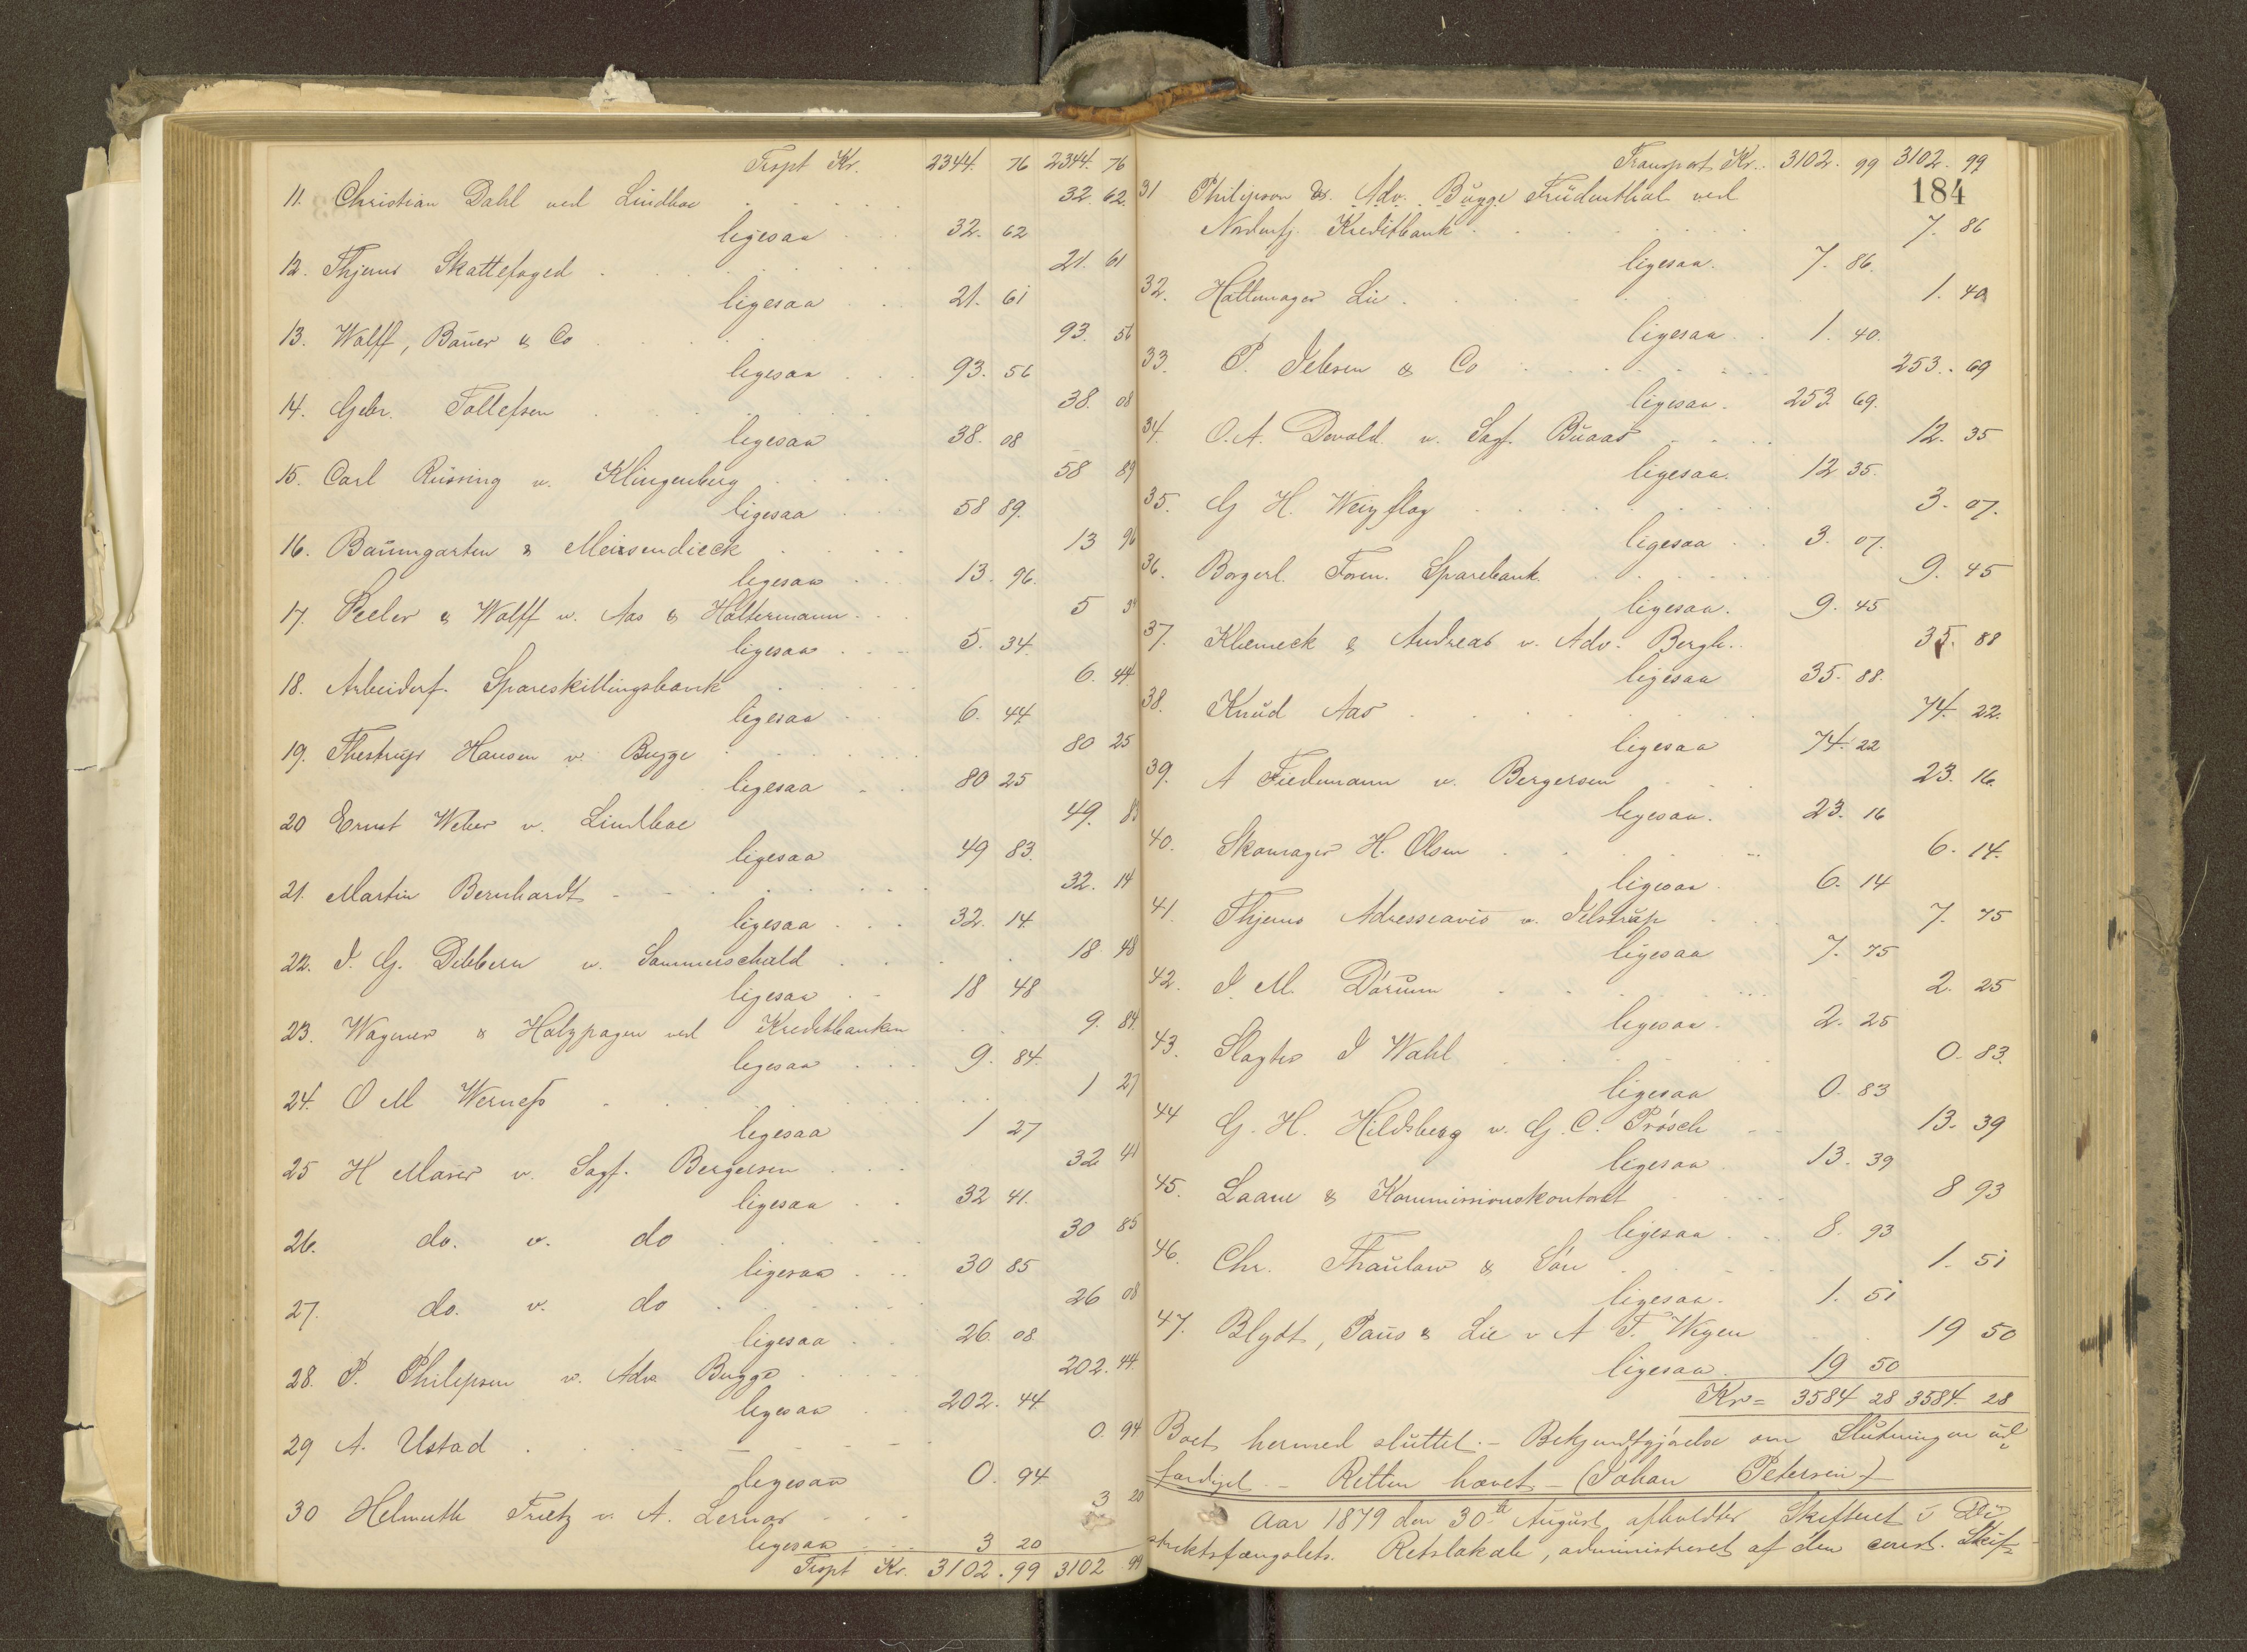 Trspt Kr. 2344. 76 2344. 76
11. Christian Dahl ved Lindboe 32. 62.
ligesaa 32. 62
12. Thjems Skattefoged 21. 61
ligesaa 21. 61
13. Wolff, Bauer & Co 93. 56
ligesaa 93. 56
14. Gebr. Tollefsen 38. 08
ligesaa 38. 08
15. Carl Rüssing v. Klingenberg 58 89
ligesaa 58 89.
16. Baumgarten & Meissendieck 13 96
ligesaa 13. 96.
17. Peeler & Wolff v. Aas & Haltermann 5 34
ligesaa 5. 34.
18. Arbeiderf. Spareskillingsbank 6. 44
ligesaa 6. 44.
19. Thestrup Hansen v. Bugge 80 25
ligesaa 80 25
20 Ernst Weber v. Lindboe 49. 83
ligesaa 49 83.
21. Martin Bernhardt 32. 14
ligesaa 32. 14.
22. I. G. Dibbern v. Sommerschield 18 48
ligesaa 18 48
23. Wagener & Holzpagen ved Kreditbanken 9. 84.
ligesaa 9. 84.
24. O M Werness 1 27
ligesaa 1 27
25 H Maser v. Sagf. Bergersen 32 41
ligesaa 32 41.
26. do. v. do 30 85
ligesaa 30 85
27. do. v. do 26 08
ligesaa 26. 08
28. P. Philipsen v. Adv Bugge 202. 44.
ligesaa 202. 44
29 A. Ustad 0. 94
ligesaa 0. 94
30 Helmuth Tretz v. A. Lernar 3 20
ligesaa 3 20
Trspt Kr. 3102. 99 3102 99
Transport Kr. 3102. 99 3102. 99
184
31 Philipson v. Adv. Bugge Frudenthal ved
Nordenfj. Kreditbank 7. 86
ligesaa. 7. 86.
32. Hattemager Lie. 1. 40
ligesaa 1. 40.
33. P. Jebsen & Co 253. 69
ligesaa. 253 69.
34. O. A. Devold v. Sagf. Buaas 12. 35
ligesaa. 12 35.
35. G H. Weizflog 3. 07.
ligesaa 3. 07.
36. Borgerl. Foren. Sparebank. 9. 45
ligesaa. 9. 45
37. Klemeck & Andreas v. Adv. Bergh. 35. 88
ligesaa 35. 88.
38. Knud Aas 74. 22.
ligesaa 74. 22
39. A Tiedemann v. Bergersen 23. 16.
ligesaa. 23. 16
40. Skomager H. Olsen 6. 14.
ligesaa 6. 14
41. Thjems Adresseavis v. Jelstrup 7. 75
ligesaa 7. 75
42. I. M. Dórum 2. 25
ligesaa. 2. 25
43. Slagter I Wahl 0. 83.
ligesaa 0. 83
44 G. H. Hildsberg v. G. C. Prósch 13. 39
ligesaa 13. 39
45. Laane & Kommissionskontoret 8 93
ligesaa 8. 93
46. Chr. Thaulow & Són 1. 51
ligesaa. 1. 51
47. Blydt, Paus & Lie v A T. Wigen 19 50
ligesaa. 19 50
Kr = 3584 28 3584. 28
Boet hermed sluttet. – Bekjendtgjórelse om Slutningen ud=
færdiget. – Retten hævet – (Johan Petersen)
Aar 1879 den 30te August afholdtes Skifteret i Di=
striktsfængslets Retslokale, administreret af den const. Skif=